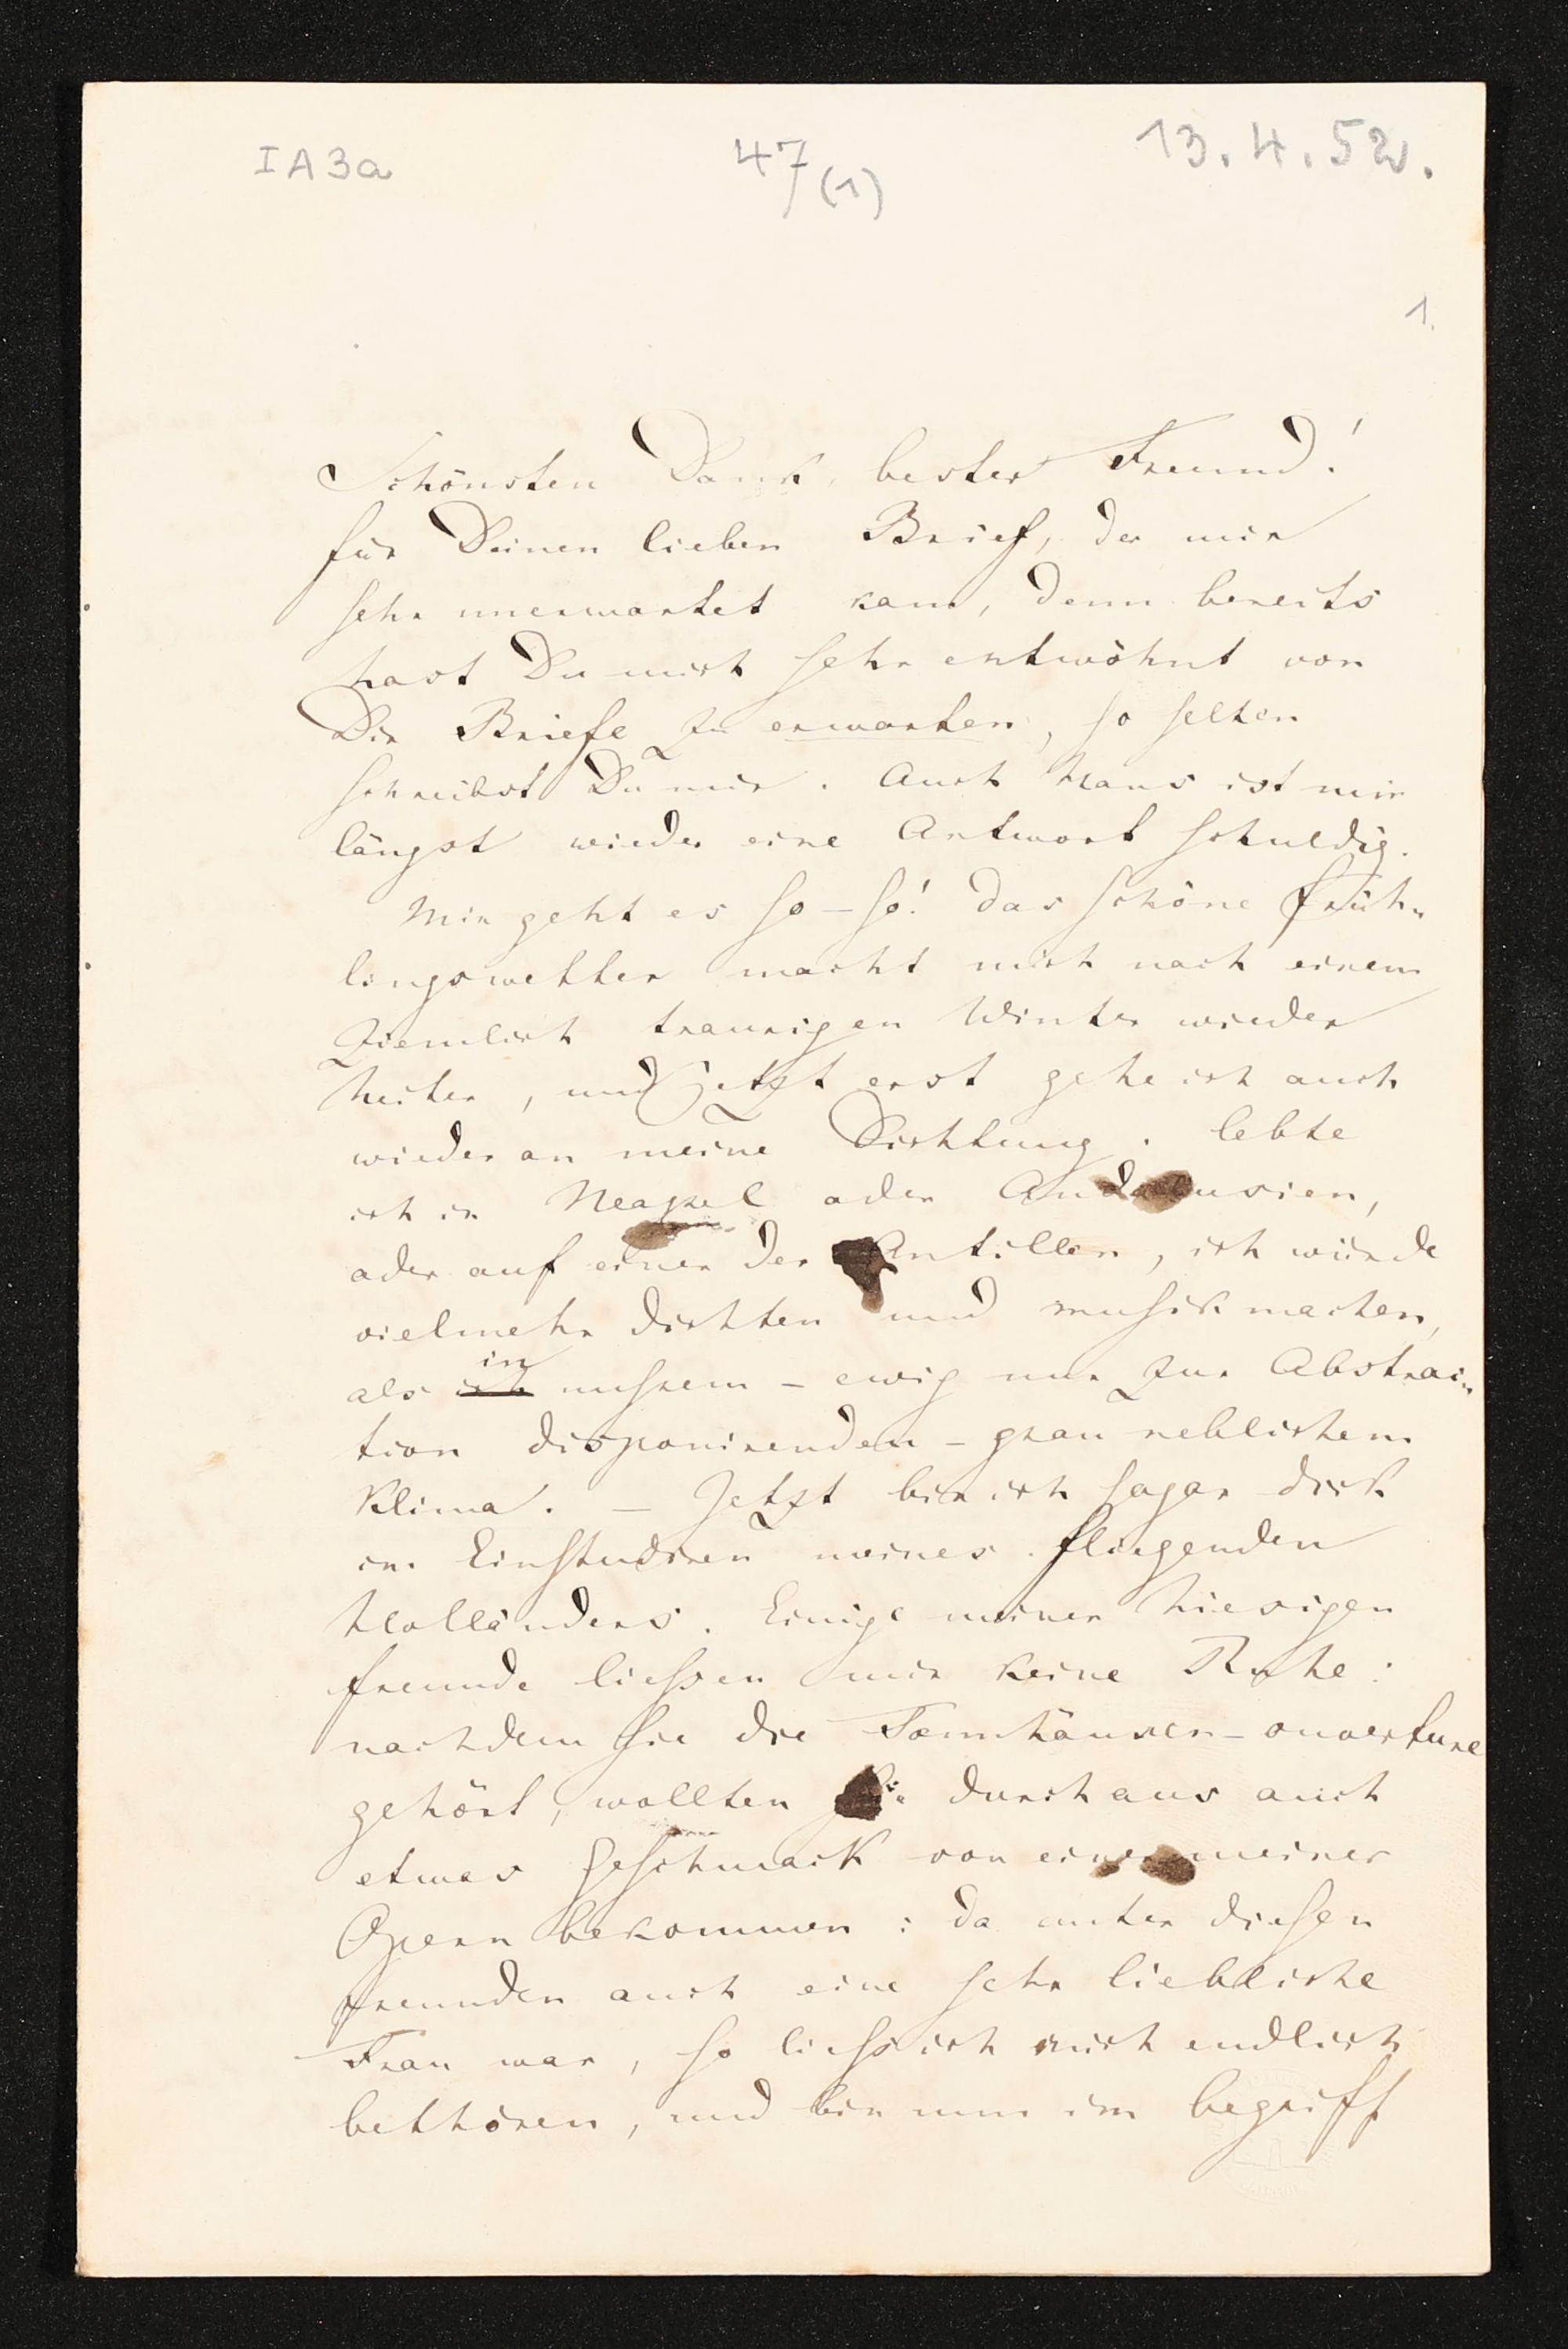 IA3a 47(1) 13.4.52.
1.
Schönsten Dank, bester Freund!
für Deinen lieben Brief, der mir
sehr unerwartet kam, denn bereits
hast Du mich sehr entwöhnt von
Dir Briefe zu erwarten, so selten
schreibst Du mir. Auch Hans ist mir
längst wieder eine Antwort schuldig.
Mir geht es so – so! das schöne früh-
lingswetter macht mich nach einem
ziemlich traurigen Winter wieder
heiter, und jetzt erst gehe ich auch
wieder an meine Dichtung. lebte
ich in Neapel oder Andalusien,
oder auf einer der Antillen, ich würde
vielmehr dichten und musik machen,
als in unsrem – ewig nur zur Abstrac-
tion disponirenden – grau neblichem
Klima. – Jetzt bin ich sogar dick
im Einstudiren meines fliegenden
Holländers. Einige meiner hiesigen
freunde liessen mir keine Ruhe:
nachdem sie die Tannhäuser-ouvertüre
gehört, wollten sie durchaus auch
etwas Geschmack von einer meiner
Opern bekommen: da unter diesen
freunden auch eine sehr liebliche
Frau war, so liess ich mich endlich
bethören, und bin nun im begriff